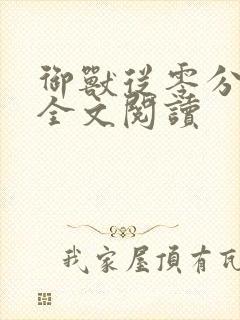 御獸從零分
全文閱讀
我家屋頂有瓦